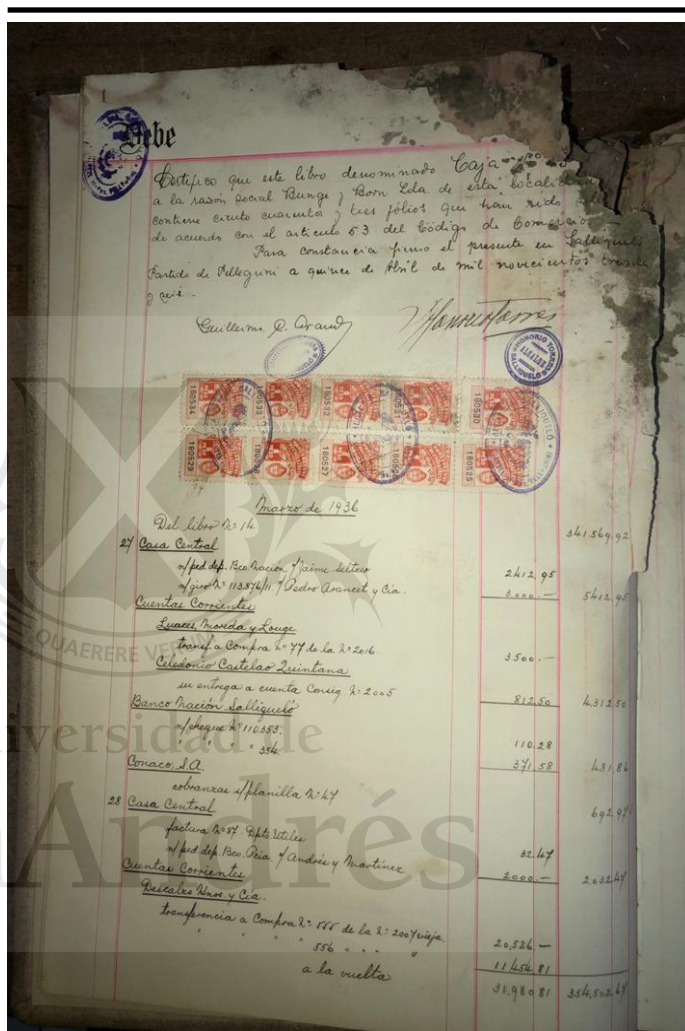 Debe
Certifico que este libro denominado Caja
a la razón social Bunge y Born Lda. de esta localidad
contiene ciento cuarenta y tres folios que han sido
de acuerdo con el artículo 53 del Código de Comercio.
Para constancia firmo el presente en Salliqueló
Partido de Pellegrini a quince de Abril de mil novecientos treinta
y seis.-
Guillermo Honorio Torres
HONORIO TORRES
SALLIQUELO
180534 180533 180532 180531 180530
180529 180527 180525
Marzo de 1936
Del libro Nº 14 341,569,92
27 Casa Central
n/ped dep. Bco Nación f/ Jaime 2412,95
n/giro Nº 113.876/11. f/ Pedro Arancet y Cía. 3.000.— 5412,95
Cuentas Corrientes
Luaces, Moreda y Louge
transf. a Compra Nº 77 de la Nº 2016 3.500.—
Celedonio Castelao Quintana
su entrega a cuenta Consig. Nº 2005 812,50 4,312,50
Banco Nación Salliqueló
n/cheque Nº 110.353. 110,28
" " " 354 371,58 481,86
Conaco S.A.
cobranzas s/planilla Nº 47 692,97
28 Casa Central
factura Nº 87. Dpto. Utiles 32,47
n/ped dep. Bco. Pcia. f/ Andrés y Martínez 2000.— 2032,47
Cuentas Corrientes
Descalzo Hnos. y Cía.
transferencia a Compra Nº 555 de la Nº 2007 vieja. 20,526 —
" " " 556 " " " " 11454,81
a la vuelta 31,980 81 354,502,67
QUAERERE VERUM
Universidad de
SanAndrés